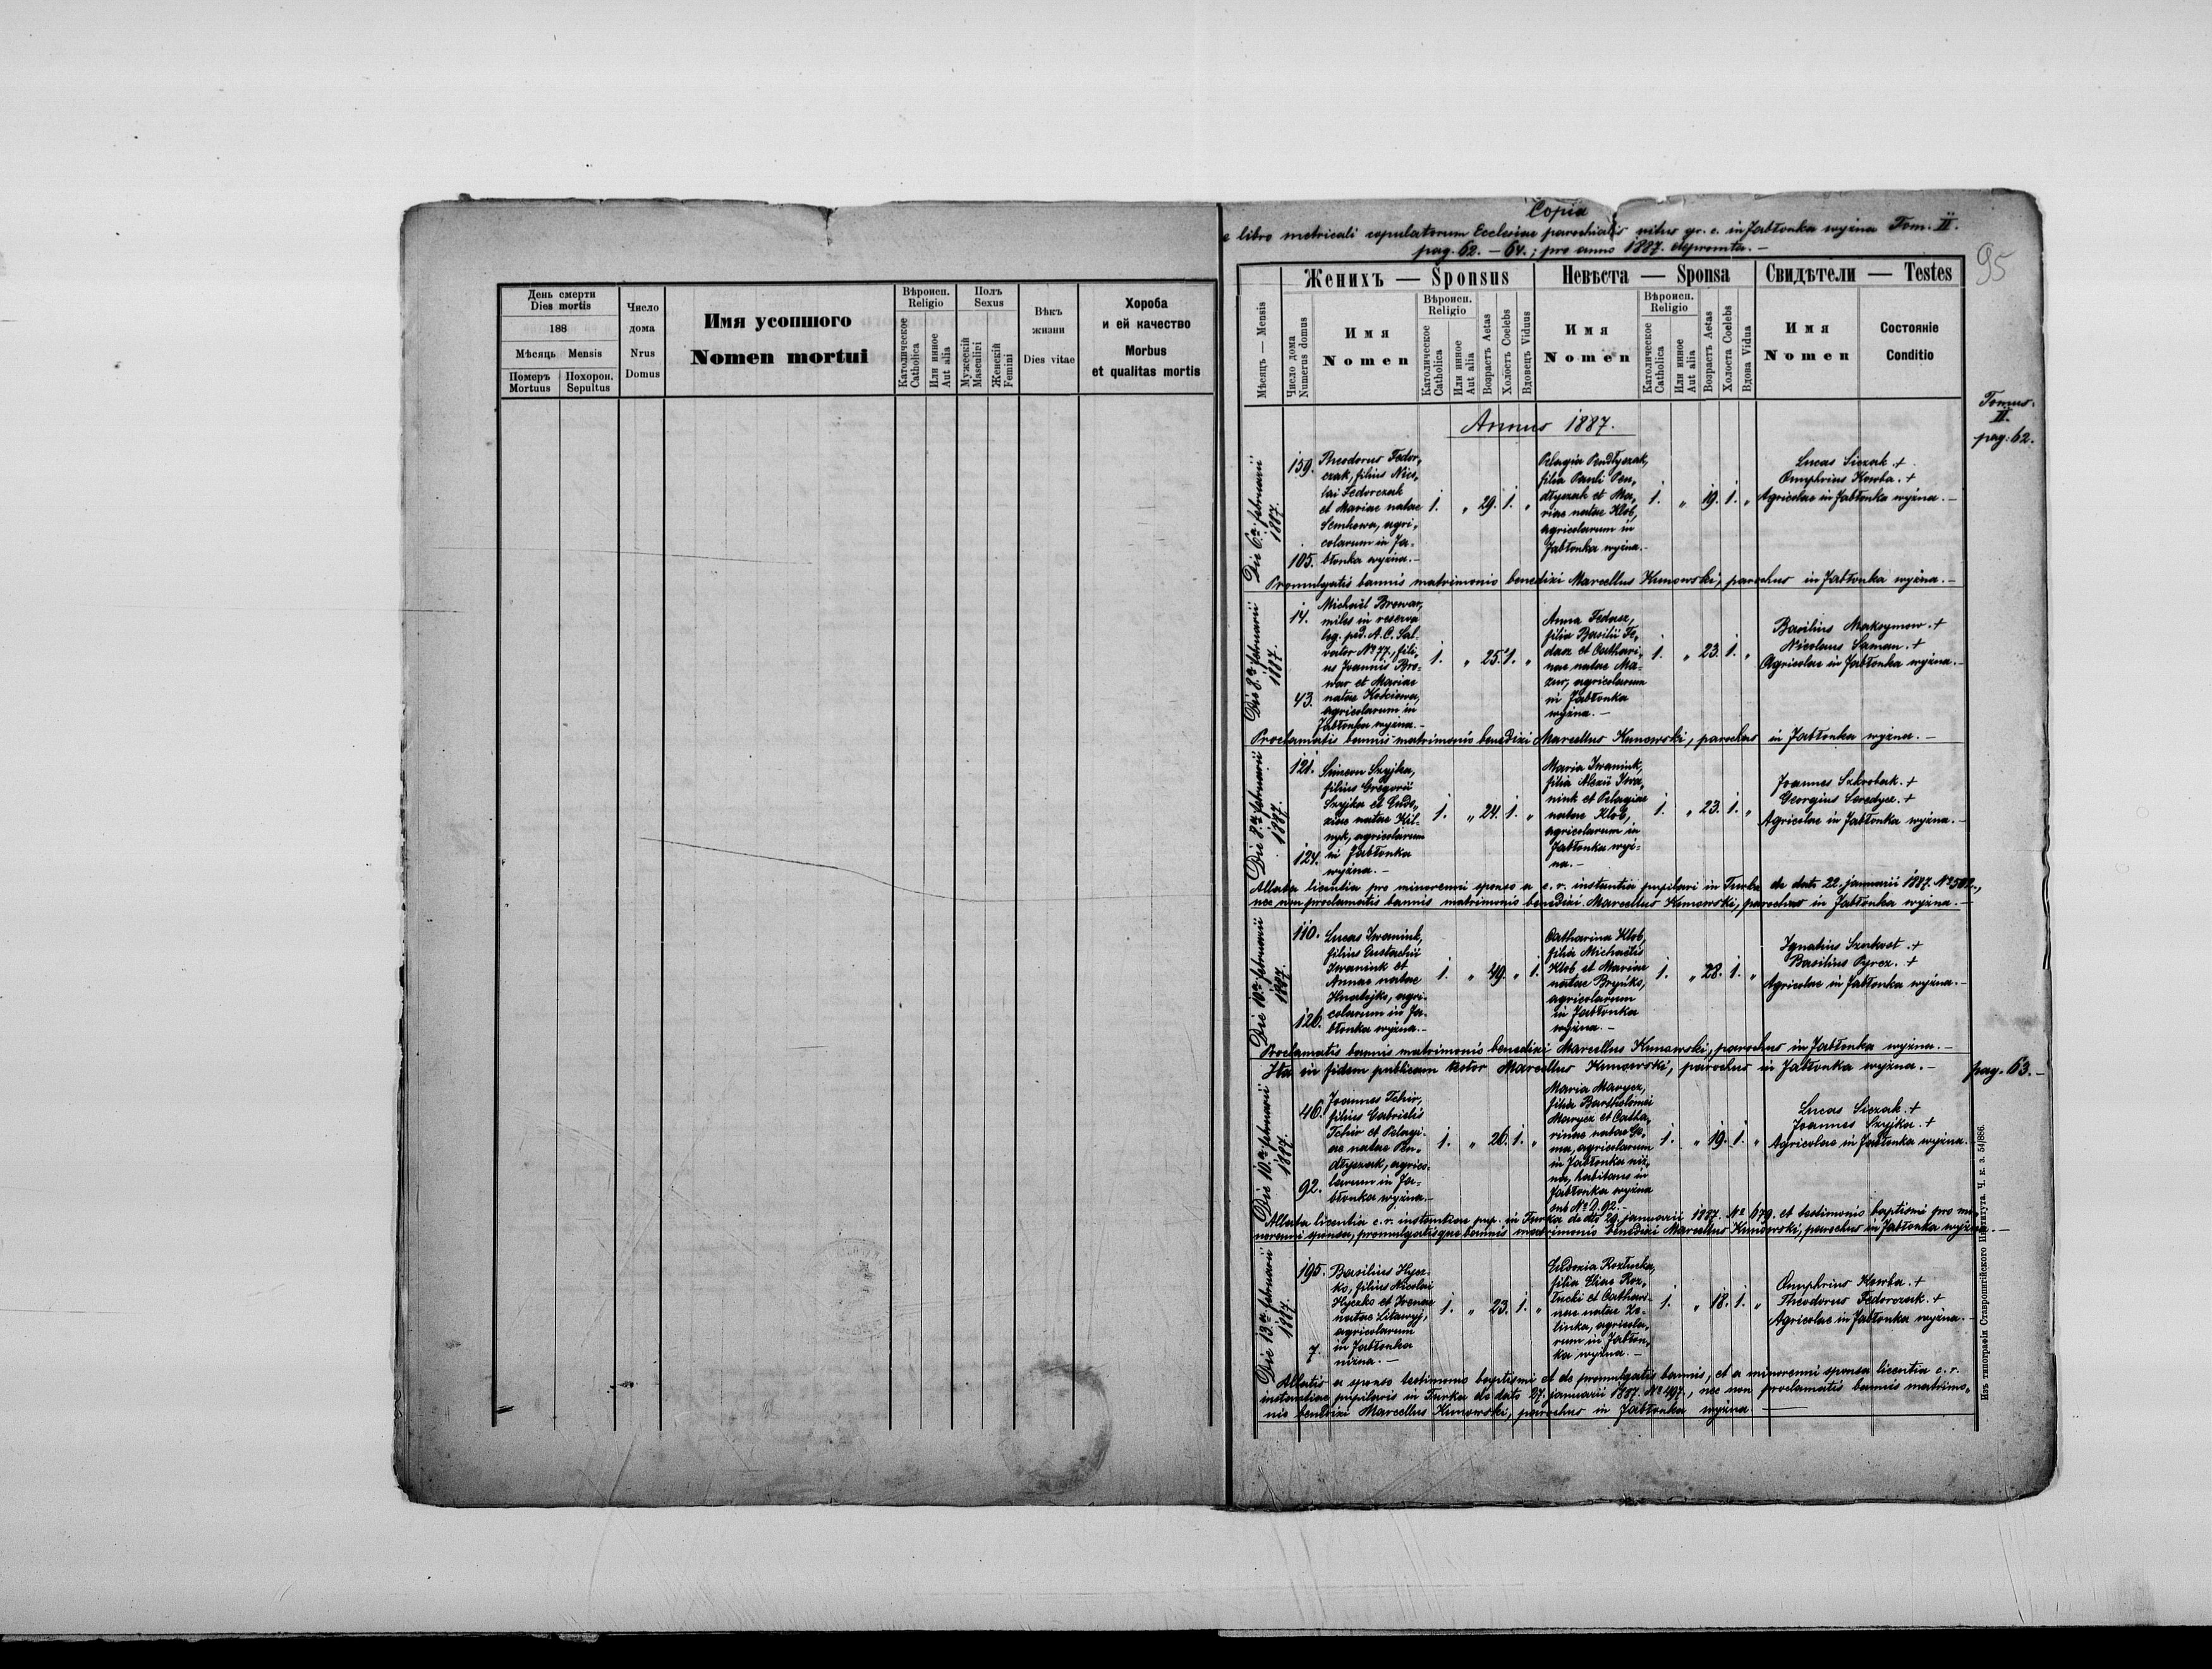 День смерти
Dies mortis
188
Мѣсяць Mensis
Померъ
Mortuus
Похорон.
Sepultus
Число
дома
Nrus
Domus
Имя усопшого
Nomen mortui
Вѣроисп.
Religio
Католическое
Catholica
Или инное
Aut alia
Полъ
Sexus
Мужескій
Masculini
Женскій
Femini
Вѣкъ
жизни
Dies vitae
Хороба
и ей качество
Morbus
et qualitas mortis
Copia
e libro metricali copulatorum Ecclesiae parochialis ritus gr. c. in Jabłonka wyżna Tom. II.
pag. 62. – 64.; pro anno 1887. depromta. –
95
Женихъ — Sponsus
Невѣста — Sponsa
Свидѣтели — Testes
Мѣсяць — Mensis
Число дома
Numerus domus
Имя
Nomen
Вѣроисп.
Religio
Католическое
Catholica
Или инное
Aut alia
Возрастъ Aetas
Холостъ Coelebs
Вдовецъ Viduus
Имя
Nomen
Вѣроисп.
Religio
Католическое
Catholica
Или инное
Aut alia
Возрастъ Aetas
Холоста Coelebs
Вдова Vidua
Имя
Nomen
Состояніе
Conditio
Tomus
II.
pag: 62.
Annus 1887.
Die 6ª februarii
1887.
159.
105.
Theodorus Fedor„
czak, filius Nico„
lai Fedorczak
et Mariae natae
Semkowa, agri„
colarum in Ja„
błonka wyżna. –
1. „ 29. 1. „
Pelagia Pendłyczak,
filia Pauli Pen„
dłyczak et Ma„
riae natae Klob,
agricolarum in
Jabłonka wyżna. –
1. „ 19. 1. „
Lucas Siczak. +
Omphrius Korba. +
Agricolae in Jabłonka wyżna. –
Promulgatis bannis matrimonio benedixi Marcellus Kunowski, parochus in Jabłonka wyżna. –
Die 8ª februarii
1887.
14.
43.
Michael Browar,
miles in reserva
leg. ped. A. C. Sal„
vator Nº 77., fili„
us Joannis Bro„
war et Mariae
natae Kościowa,
agricolarum in
Jabłonka wyżna. –
1. „ 25. 1. „
Anna Fedasz,
filia Basilii Fe„
dasz et Cathari„
nae natae Ma„
zur, agricolarum
in Jabłonka
wyżna. –
1. „ 23. 1. „
Basilius Maksymow. +
Nicolaus Saman. +
Agricolae in Jabłonka wyżna. –
Proclamatis bannis matrimonio benedixi Marcellus Kunowski, parochus in Jabłonka wyżna. –
Die 8ª februarii
1887.
121.
124.
Simeon Szyjka,
filius Gregorii
Szyjka et Eudo„
xiae natae Kil„
nyk, agricolarum
in Jabłonka
wyżna. –
1. „ 24. 1. „
Maria Iwaniuk,
filia Alexii Iwa„
niuk et Pelagiae
natae Klob,
agricolarum in
Jabłonka wyż„
na. –
1. „ 23. 1. „
Joannes Szkrobak. +
Georgius Seredycz. +
Agricolae in Jabłonka wyżna. –
Allata licentia pro minorenni sponso a c. r. instantia pupilari in Turka de dato 22. januarii 1887. Nº 502.,
nec non proclamatis bannis matrimonio benedixi Marcellus Kunowski, parochus in Jabłonka wyżna. –
Die 10ª februarii
1887.
110.
126.
Lucas Iwaniuk,
filius Eustachii
Iwaniuk et
Annae natae
Hnatejko, agri„
colarum in Ja„
błonka wyżna. –
1. „ 49. „ 1.
Catharina Klob,
filia Michaelis
Klob et Mariae
natae Bryńko,
agricolarum
in Jabłonka
wyżna. –
1. „ 28. 1. „
Ignatius Szarkost. +
Basilius Pyrcz. +
Agricolae in Jabłonka wyżna. –
Proclamatis bannis matrimonio benedixi Marcellus Kunowski, parochus in Jabłonka wyżna. –
Ita in fidem publicam testor Marcellus Kunowski, parochus in Jabłonka wyżna. –
pag. 63. –
Die 10ª februarii
1887.
46.
92.
Joannes Tchir,
filius Gabrielis
Tchir et Pelagi„
ae natae Pen„
dłyczak, agrico„
larum in Ja„
błonka wyżna. –
1. „ 26. 1. „
Maria Marycz,
filia Bartholomei
Marycz et Catha„
rinae natae Ga„
ma, agricolarum
in Jabłonka niż„
na, habitans in
Jabłonka wyżna
sub Nº D. 92. –
1. „ 19. 1. „
Lucas Siczak. +
Joannes Szyjka. +
Agricolae in Jabłonka wyżna.
Allata licentia c. r. instantiae pup. in Turka de dto 29. januarii 1887. Nº 679. et testimonio baptismi pro mi„
norenni sponsa, promulgatisque bannis matrimonio benedixi Marcellus Kunowski, parochus in Jabłonka wyżna. –
Die 13ª februarii
1887.
195.
7.
Basilius Hycz„
ko, filius Nicolai
Hyczko et Irenae
natae Litawyj,
agricolarum
in Jabłonka
niżna. –
1. „ 23. 1. „
Eudoxia Rozłucka,
filia Eliae Roz„
łucki et Cathari„
nae natae Ze„
linka, agricola„
rum in Jabłon„
ka wyżna. –
1. „ 18. 1. „
Omphrius Korba. +
Theodorus Fedorczak. +
Agricolae in Jabłonka wyżna. –
Allatis a sponso testimonio baptismi et de promulgatis bannis, et a minorenni sponsa licentia c. r.
instantiae pupilaris in Turka de dato 27. januarii 1887. Nº 497., nec non proclamatis bannis matrimo„
nio benedixi Marcellus Kunowski, parochus in Jabłonka wyżna. –
Изъ типографіи Ставропигійского Института. Ч. к. з. 54/886.